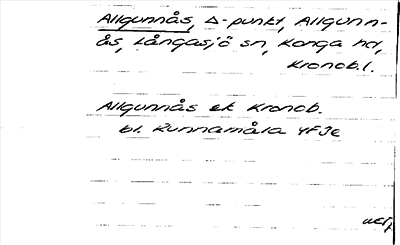 Allgunnås, Δ-punkt, Allgunn-
ås, Långasjö sn, Konga hd,
Kronob.l.
Allgunnås ek Kronob.
bl. Runnamåla 4F3e